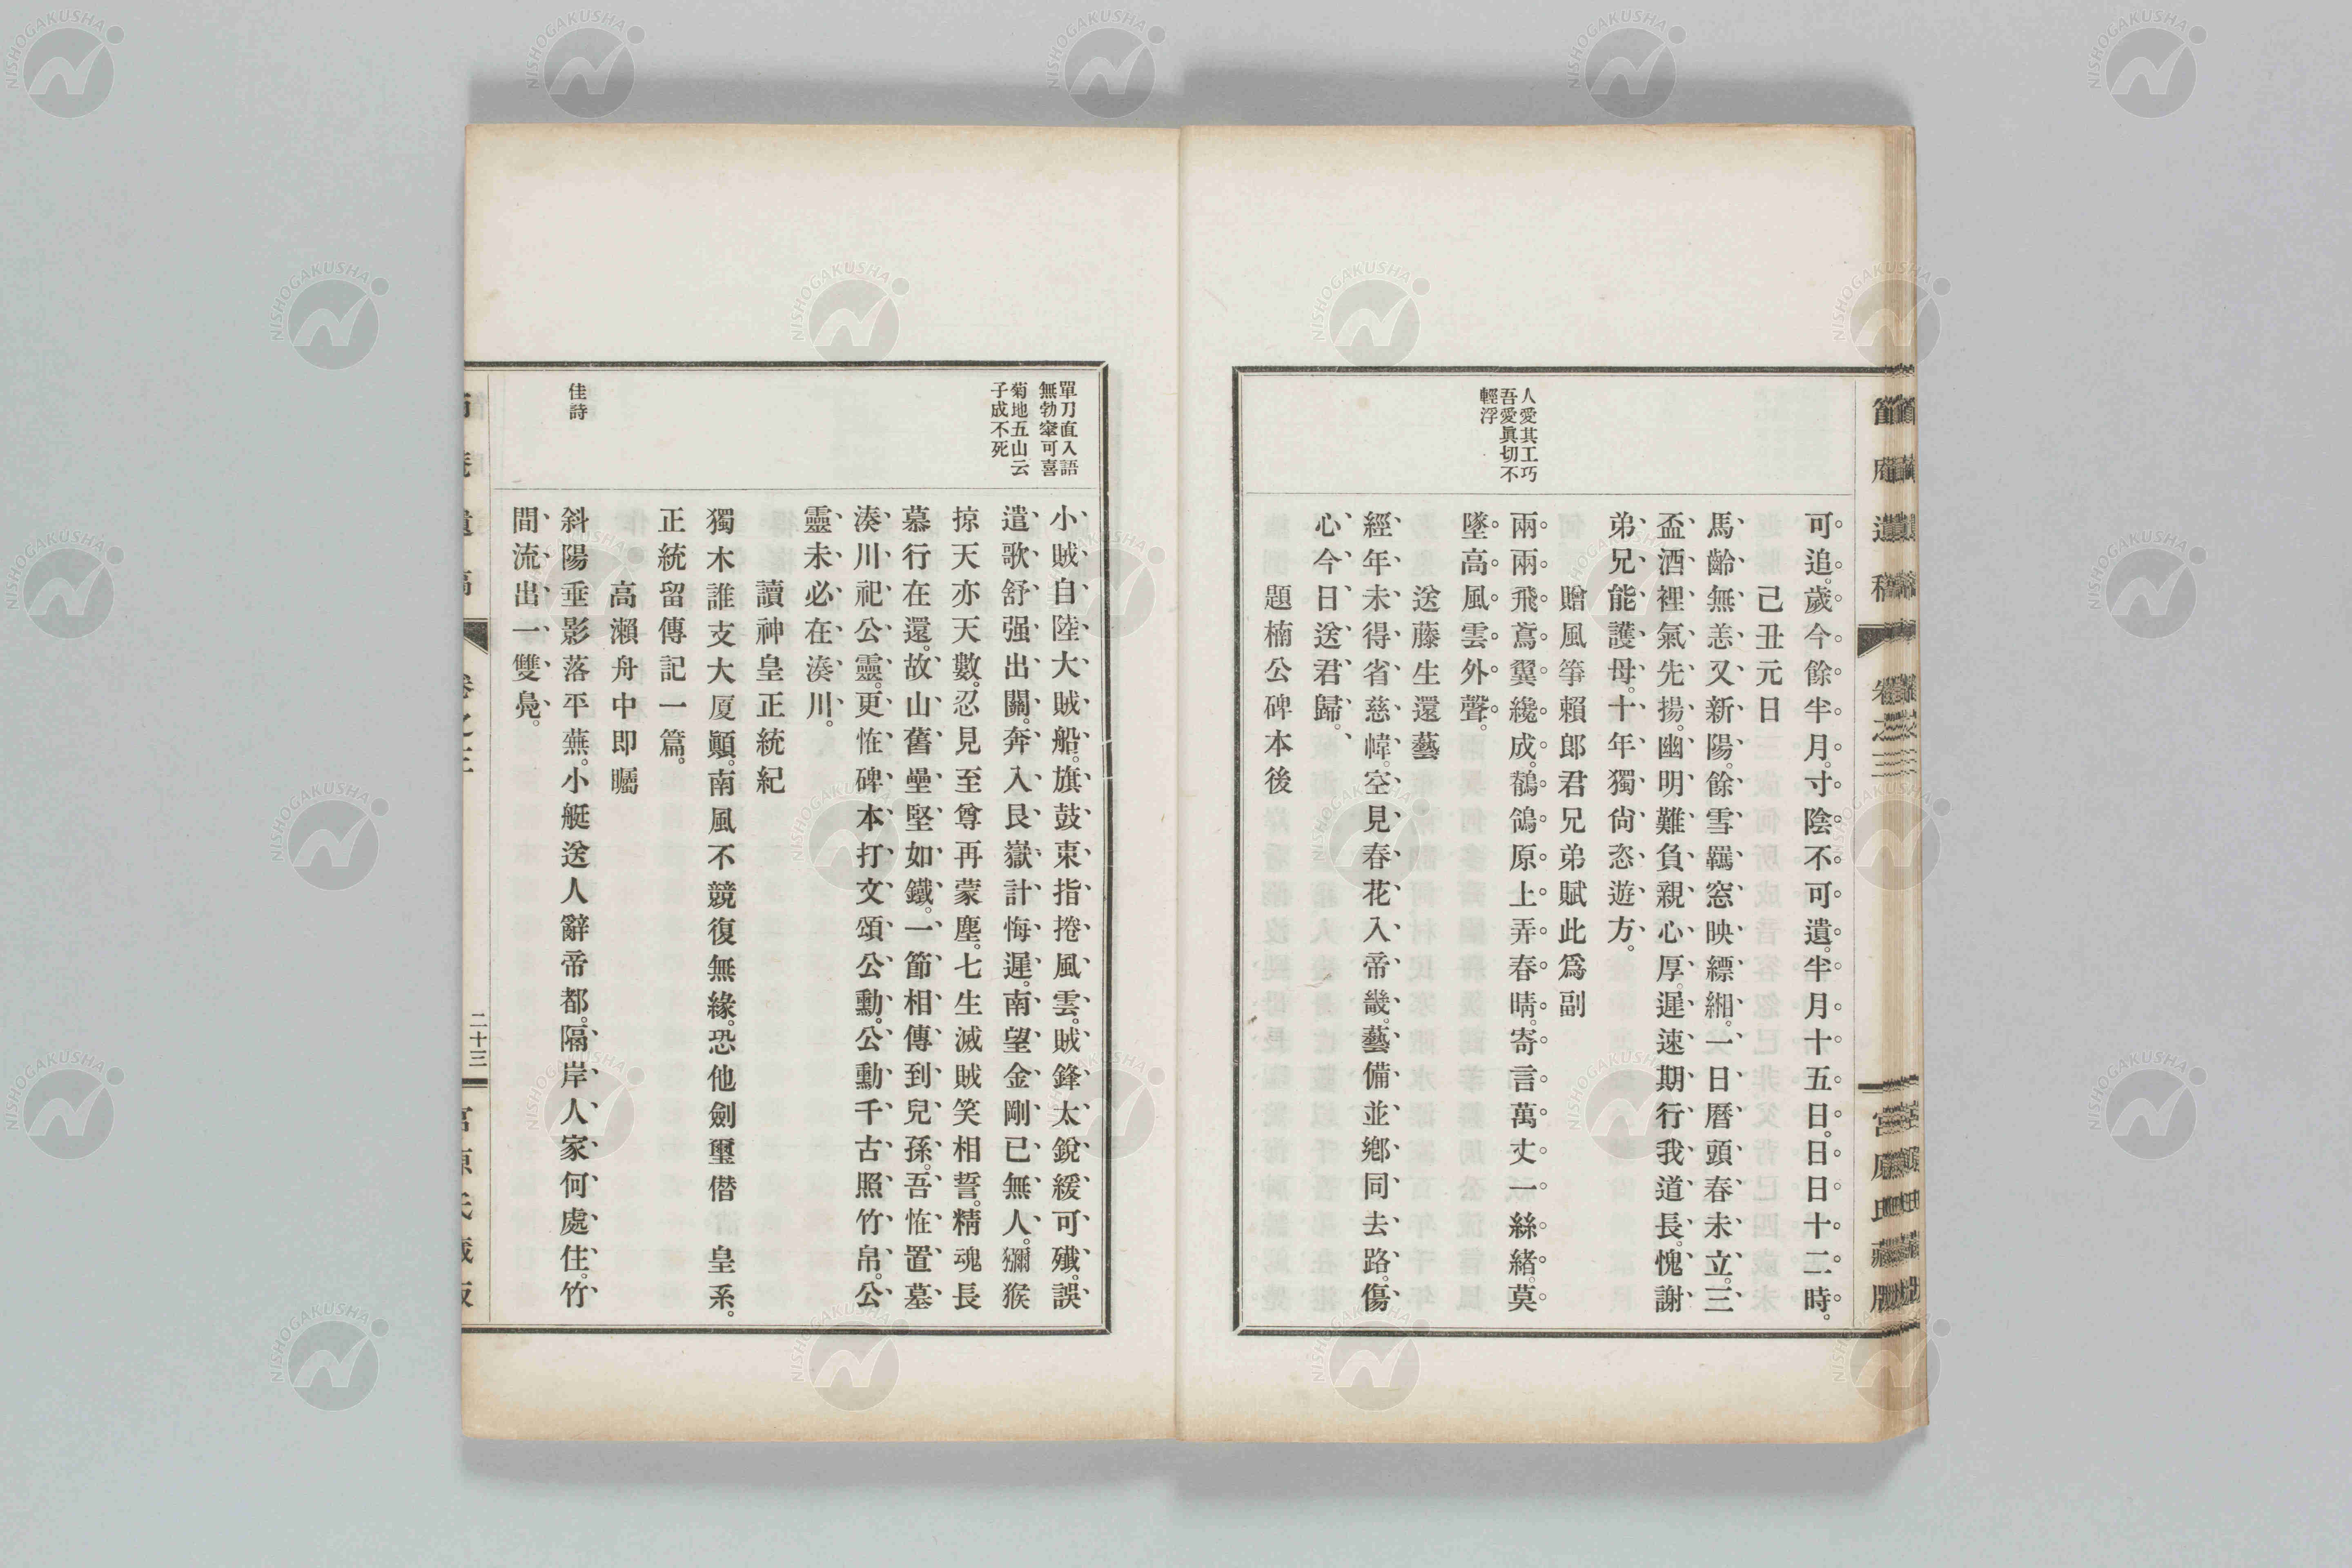 節庵遺稿
卷之三
宮原氏藏版
可追。歲今餘半月。寸陰不可遺。半月十五日。日日十二時。
己丑元日
馬齡無恙又新陽。餘雪羈窓映縹緗。一日曆頭春未立。三
盃酒裡氣先揚。幽明難負親心厚。遲速期行我道長。愧謝
弟兄能護母。十年獨尙恣遊方。
贈風箏賴郎君兄弟賦此爲副
兩兩飛鳶翼纔成。鶺鴒原上弄春晴。寄言萬丈一絲緖。莫
墜高風雲外聲。
送藤生還藝
經年未得省慈幃。空見春花入帝畿。藝備並鄕同去路。傷
心今日送君歸。
題楠公碑本後
人愛其工巧
吾愛眞切不
輕浮
小賊自陸大賊船。旗鼓東指捲風雲。賊鋒太銳緩可殲。誤
遣歌舒强出關。奔入艮嶽計悔遲。南望金剛已無人。獼猴
掠天亦天數。忍見至尊再蒙塵。七生滅賊笑相誓。精魂長
慕行在還。故山舊壘堅如鐵。一節相傳到兒孫。吾恠置墓
湊川祀公靈。更恠碑本打文頌公勳。公勳千古照竹帛。公
靈未必在湊川。
讀神皇正統紀
獨木誰支大厦顚。南風不競復無緣。恐他劍璽僭 皇系。
正統留傳記一篇。
高瀨舟中即矚
斜陽垂影落平蕪。小艇送人辭帝都。隔岸人家何處住。竹
間流出一雙鳧。
單刀直入語
無勃窣可喜
菊地五山云
子成不死
佳詩
二十三